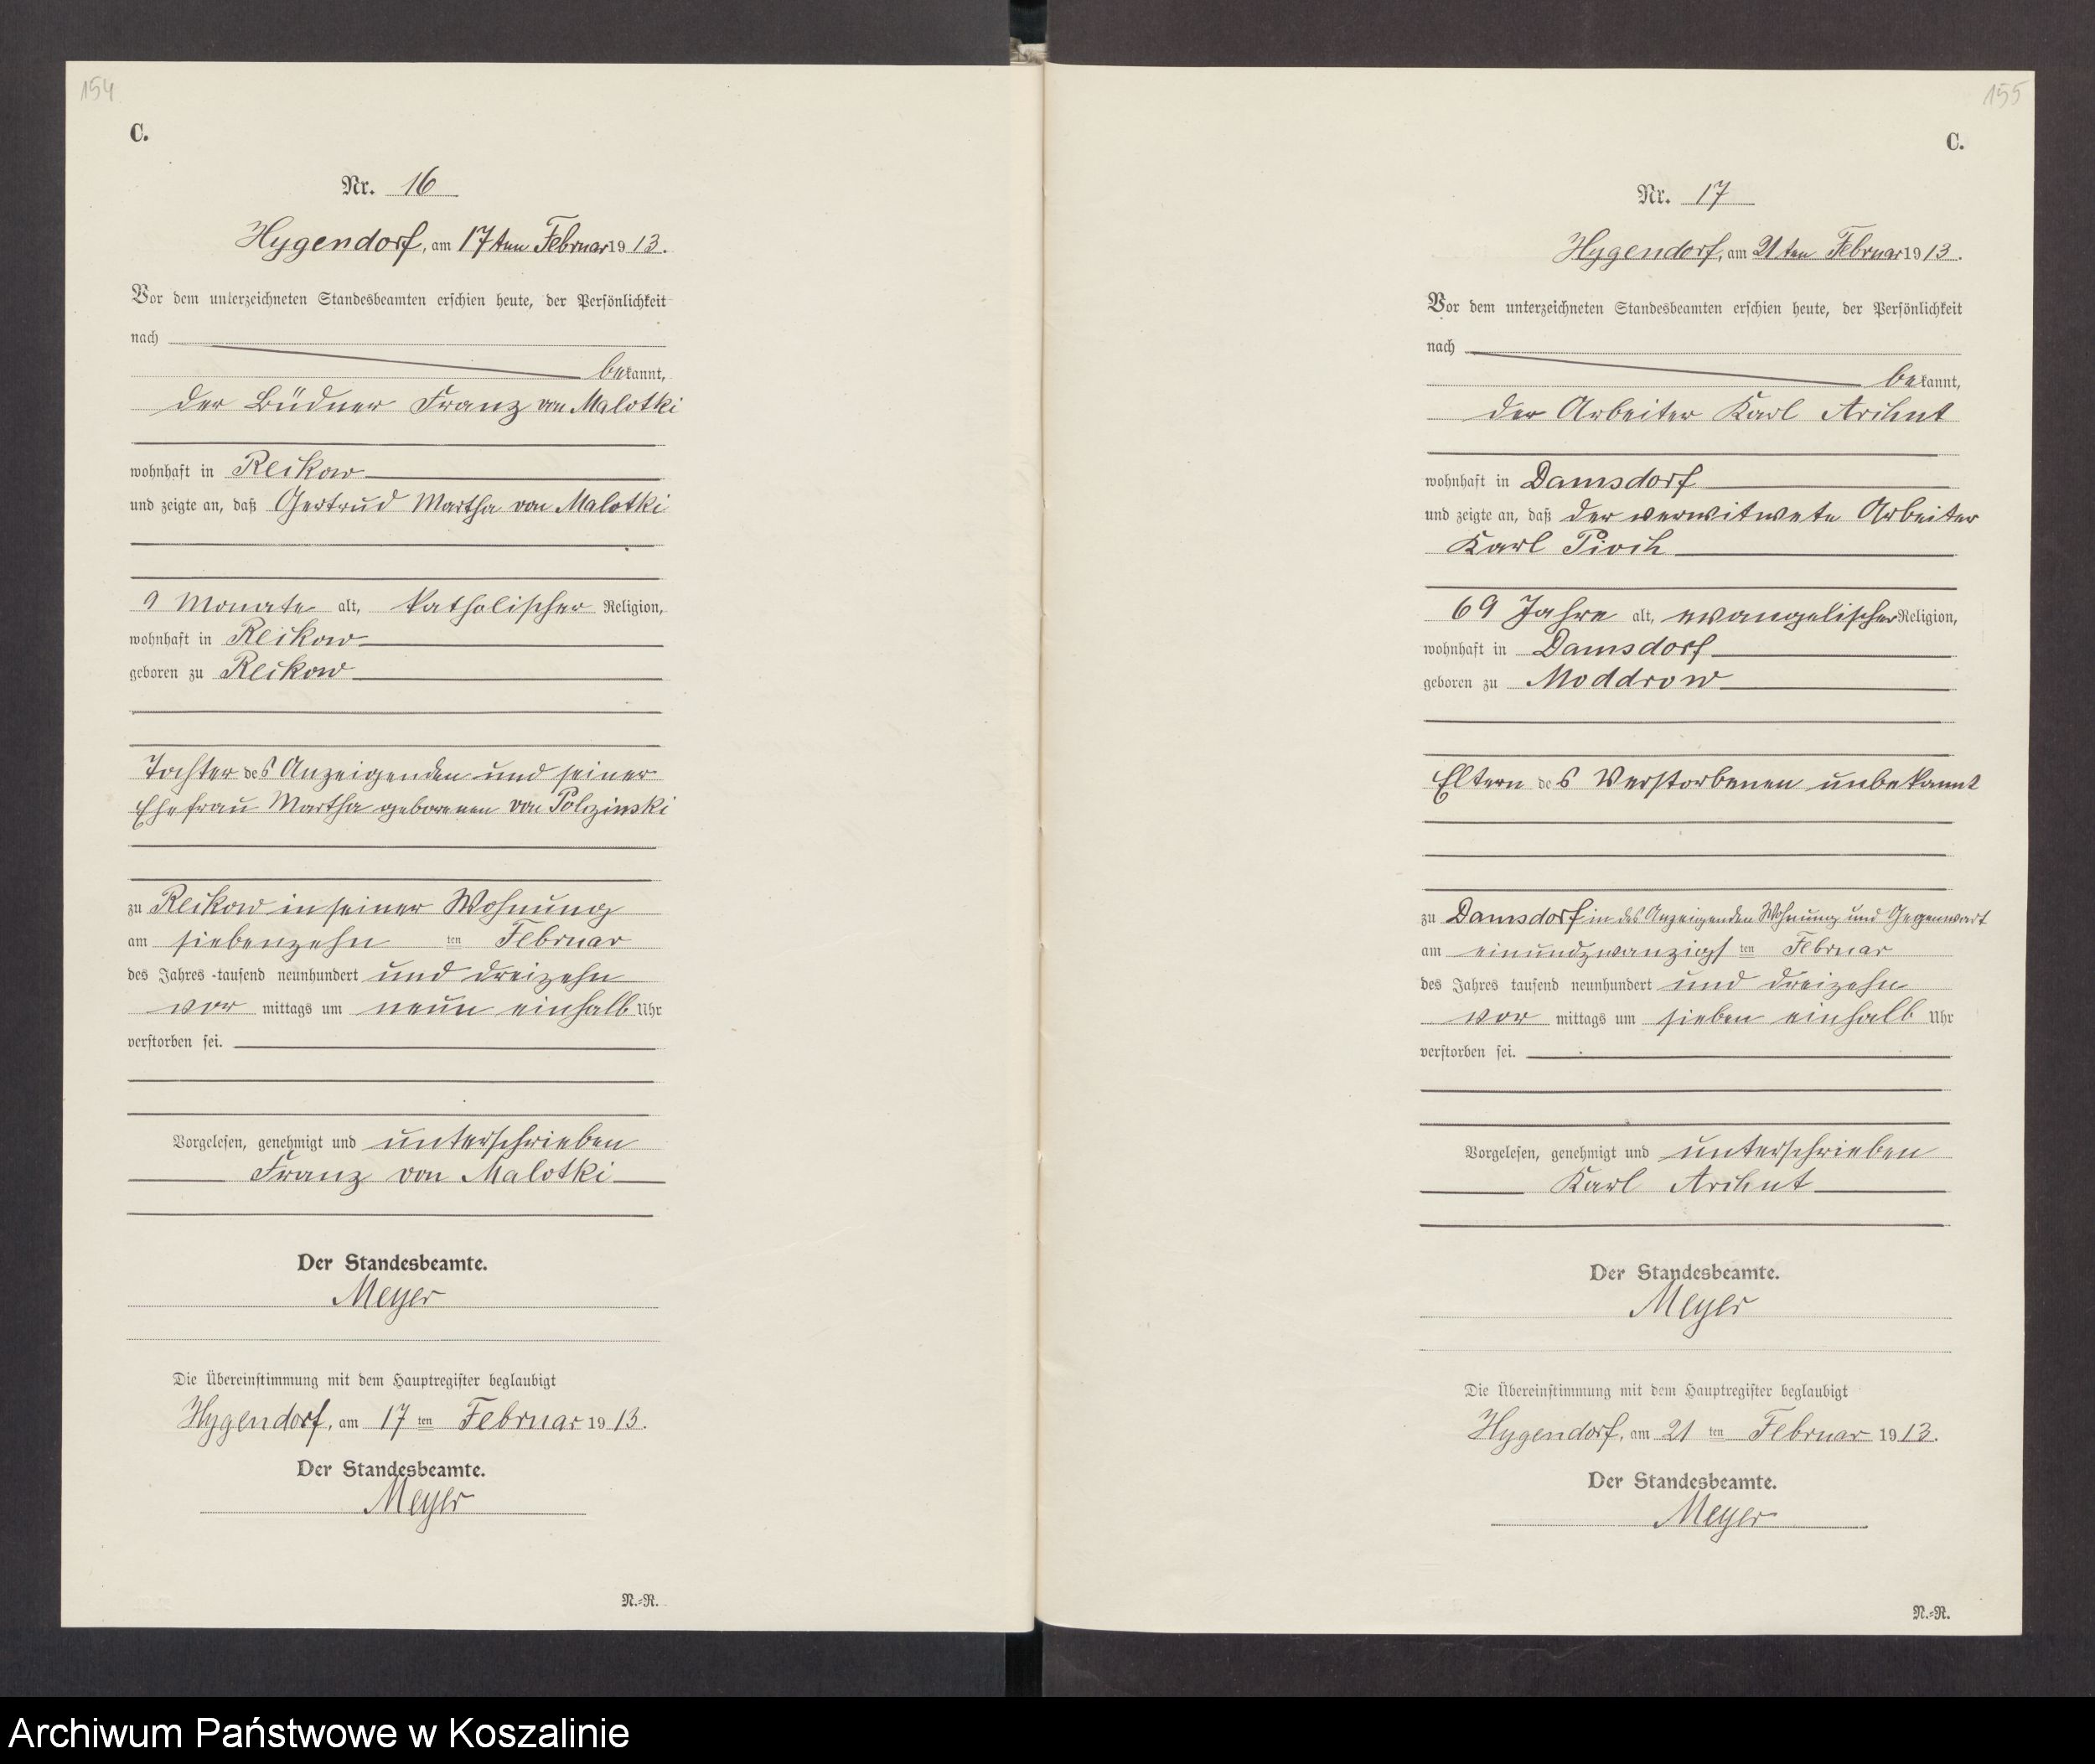 154
C.
Nr. 16
Hygendorf, am 17ten Februar 1913.
Vor dem unterzeichneten Standesbeamten erschien heute, der Persönlichkeit
nach
bekannt,
der Büdner Franz von Malotki
wohnhaft in Reikow
und zeigte an, daß Gertrud Martha von Malotki
9 Monate alt, katholischer Religion,
wohnhaft in Reikow
geboren zu Reikow
Tochter des Anzeigenden und seiner
Ehefrau Martha geborenen von Polczinski
zu Reikow in seiner Wohnung
am siebenzehn ten Februar
des Jahres -tausend neunhundert und dreizehn
vor mittags um neun einhalb Uhr
verstorben sei.
Vorgelesen, genehmigt und unterschrieben
Franz von Malotki
Der Standesbeamte.
Meyer
Die Übereinstimmung mit dem Hauptregister beglaubigt
Hygendorf, am 17 ten Februar 1913.
Der Standesbeamte.
Meyer
N.-R.
155
C.
Nr. 17
Hygendorf, am 21ten Februar 1913.
Vor dem unterzeichneten Standesbeamten erschien heute, der Persönlichkeit
nach
bekannt,
der Arbeiter Karl
wohnhaft in Damsdorf
und zeigte an, daß der verwitwete Arbeiter
Karl Pioch
69 Jahre alt, evangelischer Religion,
wohnhaft in Damsdorf
geboren zu Moddrow
Eltern des Verstorbenen unbekannt
zu Damsdorf in des Anzeigenden Wohnung und Gegenwart
am einundzwanzigs ten Februar
des Jahres tausend neunhundert und dreizehn
vor mittags um sieben einhalb Uhr
verstorben sei.
Vorgelesen, genehmigt und unterschrieben
Karl
Der Standesbeamte.
Meyer
Die Übereinstimmung mit dem Hauptregister beglaubigt
Hygendorf, am 21 ten Februar 1913.
Der Standesbeamte.
Meyer
N.-R.
Archiwum Państwowe w Koszalinie